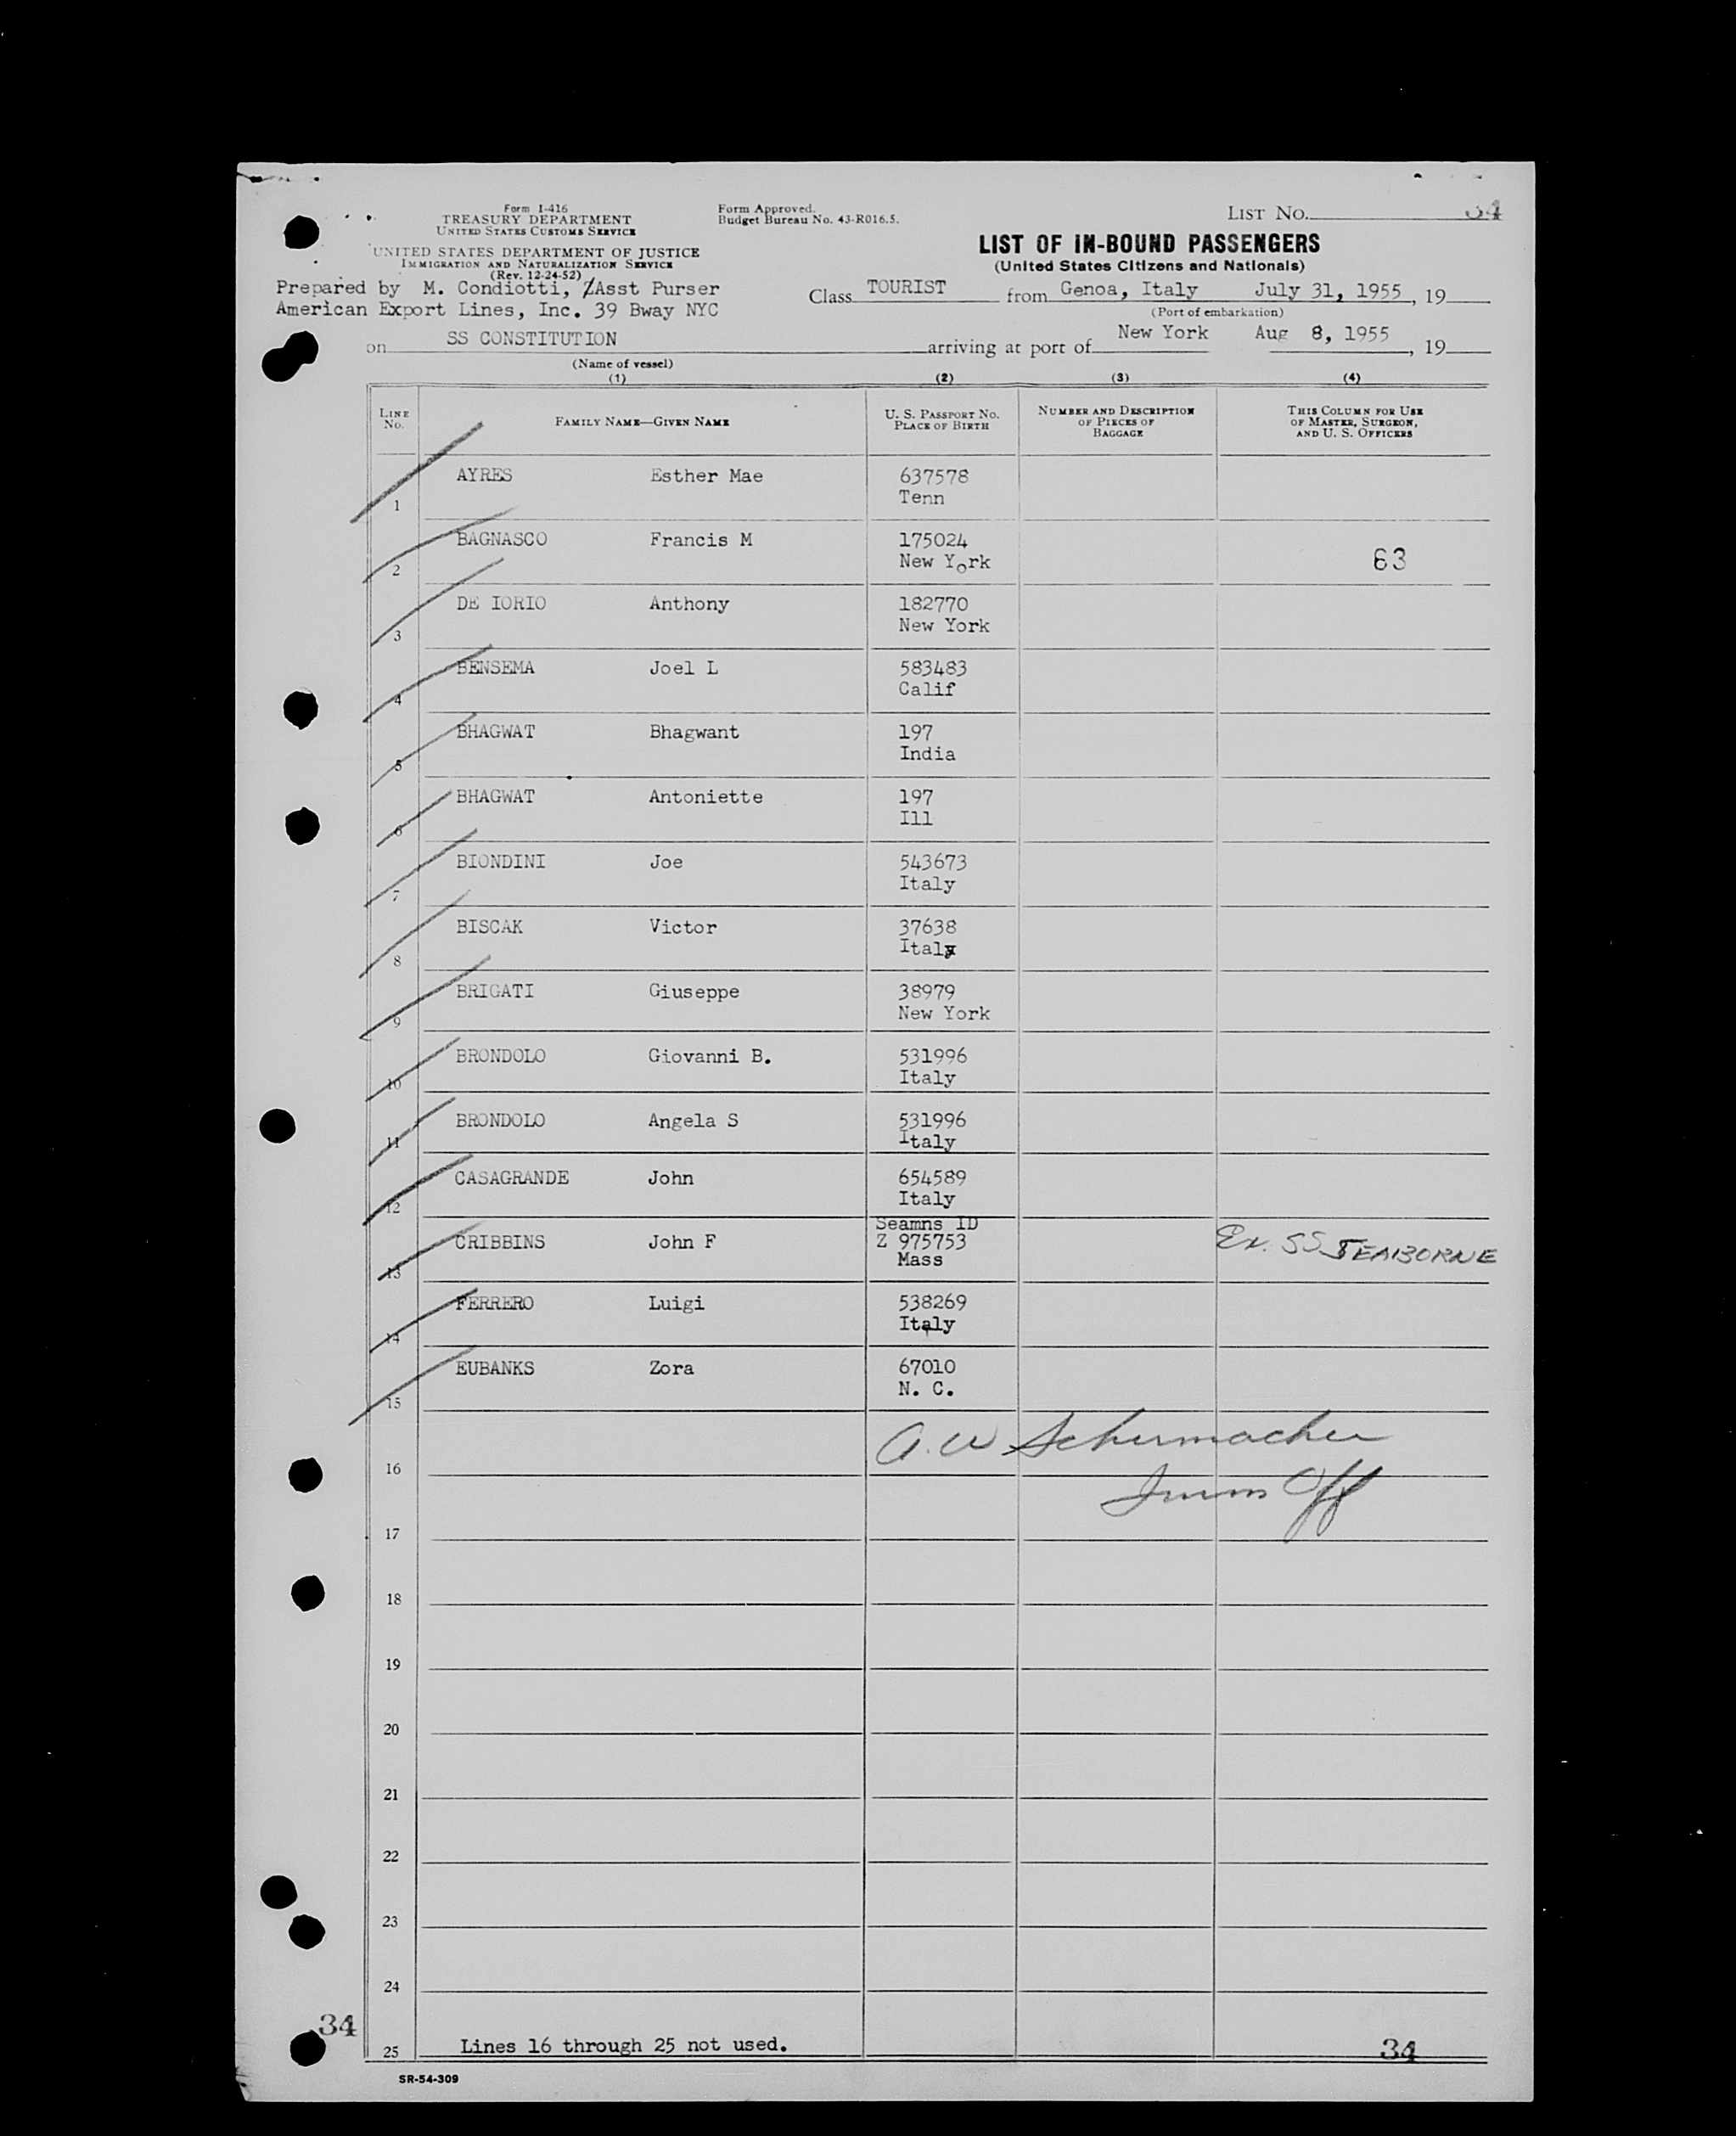 Form I-416
TREASURY DEPARTMENT
UNITED STATES CUSTOMS SERVICE
UNITED STATES DEPARTMENT OF JUSTICE
IMMIGRATION AND NATURALIZATION SERVICE
(Rev. 12-24-52)
Form Approved.
Budget Bureau No. 43-R016.5.
LIST No. 34
LIST OF IN-BOUND PASSENGERS
(United States Citizens and Nationals)
Prepared by M. Condiotti, /Asst Purser
American Export Lines, Inc. 39 Bway NYC
Class TOURIST from Genoa, Italy July 31, 1955, 19
(Port of embarkation)
on SS CONSTITUTION arriving at port of New York Aug 8, 1955, 19
(Name of vessel)
(1) (2) (3) (4)
LINE No. FAMILY NAME—GIVEN NAME U. S. PASSPORT No. PLACE OF BIRTH NUMBER AND DESCRIPTION OF PIECES OF BAGGAGE THIS COLUMN FOR USE OF MASTER, SURGEON, AND U. S. OFFICERS
1 AYRES Esther Mae 637578
Tenn
2 BAGNASCO Francis M 175024
New York 63
3 DE IORIO Anthony 182770
New York
4 BENSEMA Joel L 583483
Calif
5 BHAGWAT Bhagwant 197
India
6 BHAGWAT Antoniette 197
Ill
7 BIONDINI Joe 543673
Italy
8 BISCAK Victor 37638
Italy
9 BRIGATI Giuseppe 38979
New York
10 BRONDOLO Giovanni B. 531996
Italy
11 BRONDOLO Angela S 531996
Italy
12 CASAGRANDE John 654589
Italy
Seamns ID
13 CRIBBINS John F Z 975753 Ex. SS SEABORNE
Mass
14 FERRERO Luigi 538269
Italy
15 EUBANKS Zora 67010
N. C.
A. W Schumacher
16
Imm Off
17
18
19
20
21
22
23
24
34
25 Lines 16 through 25 not used. 34
SR-54-309